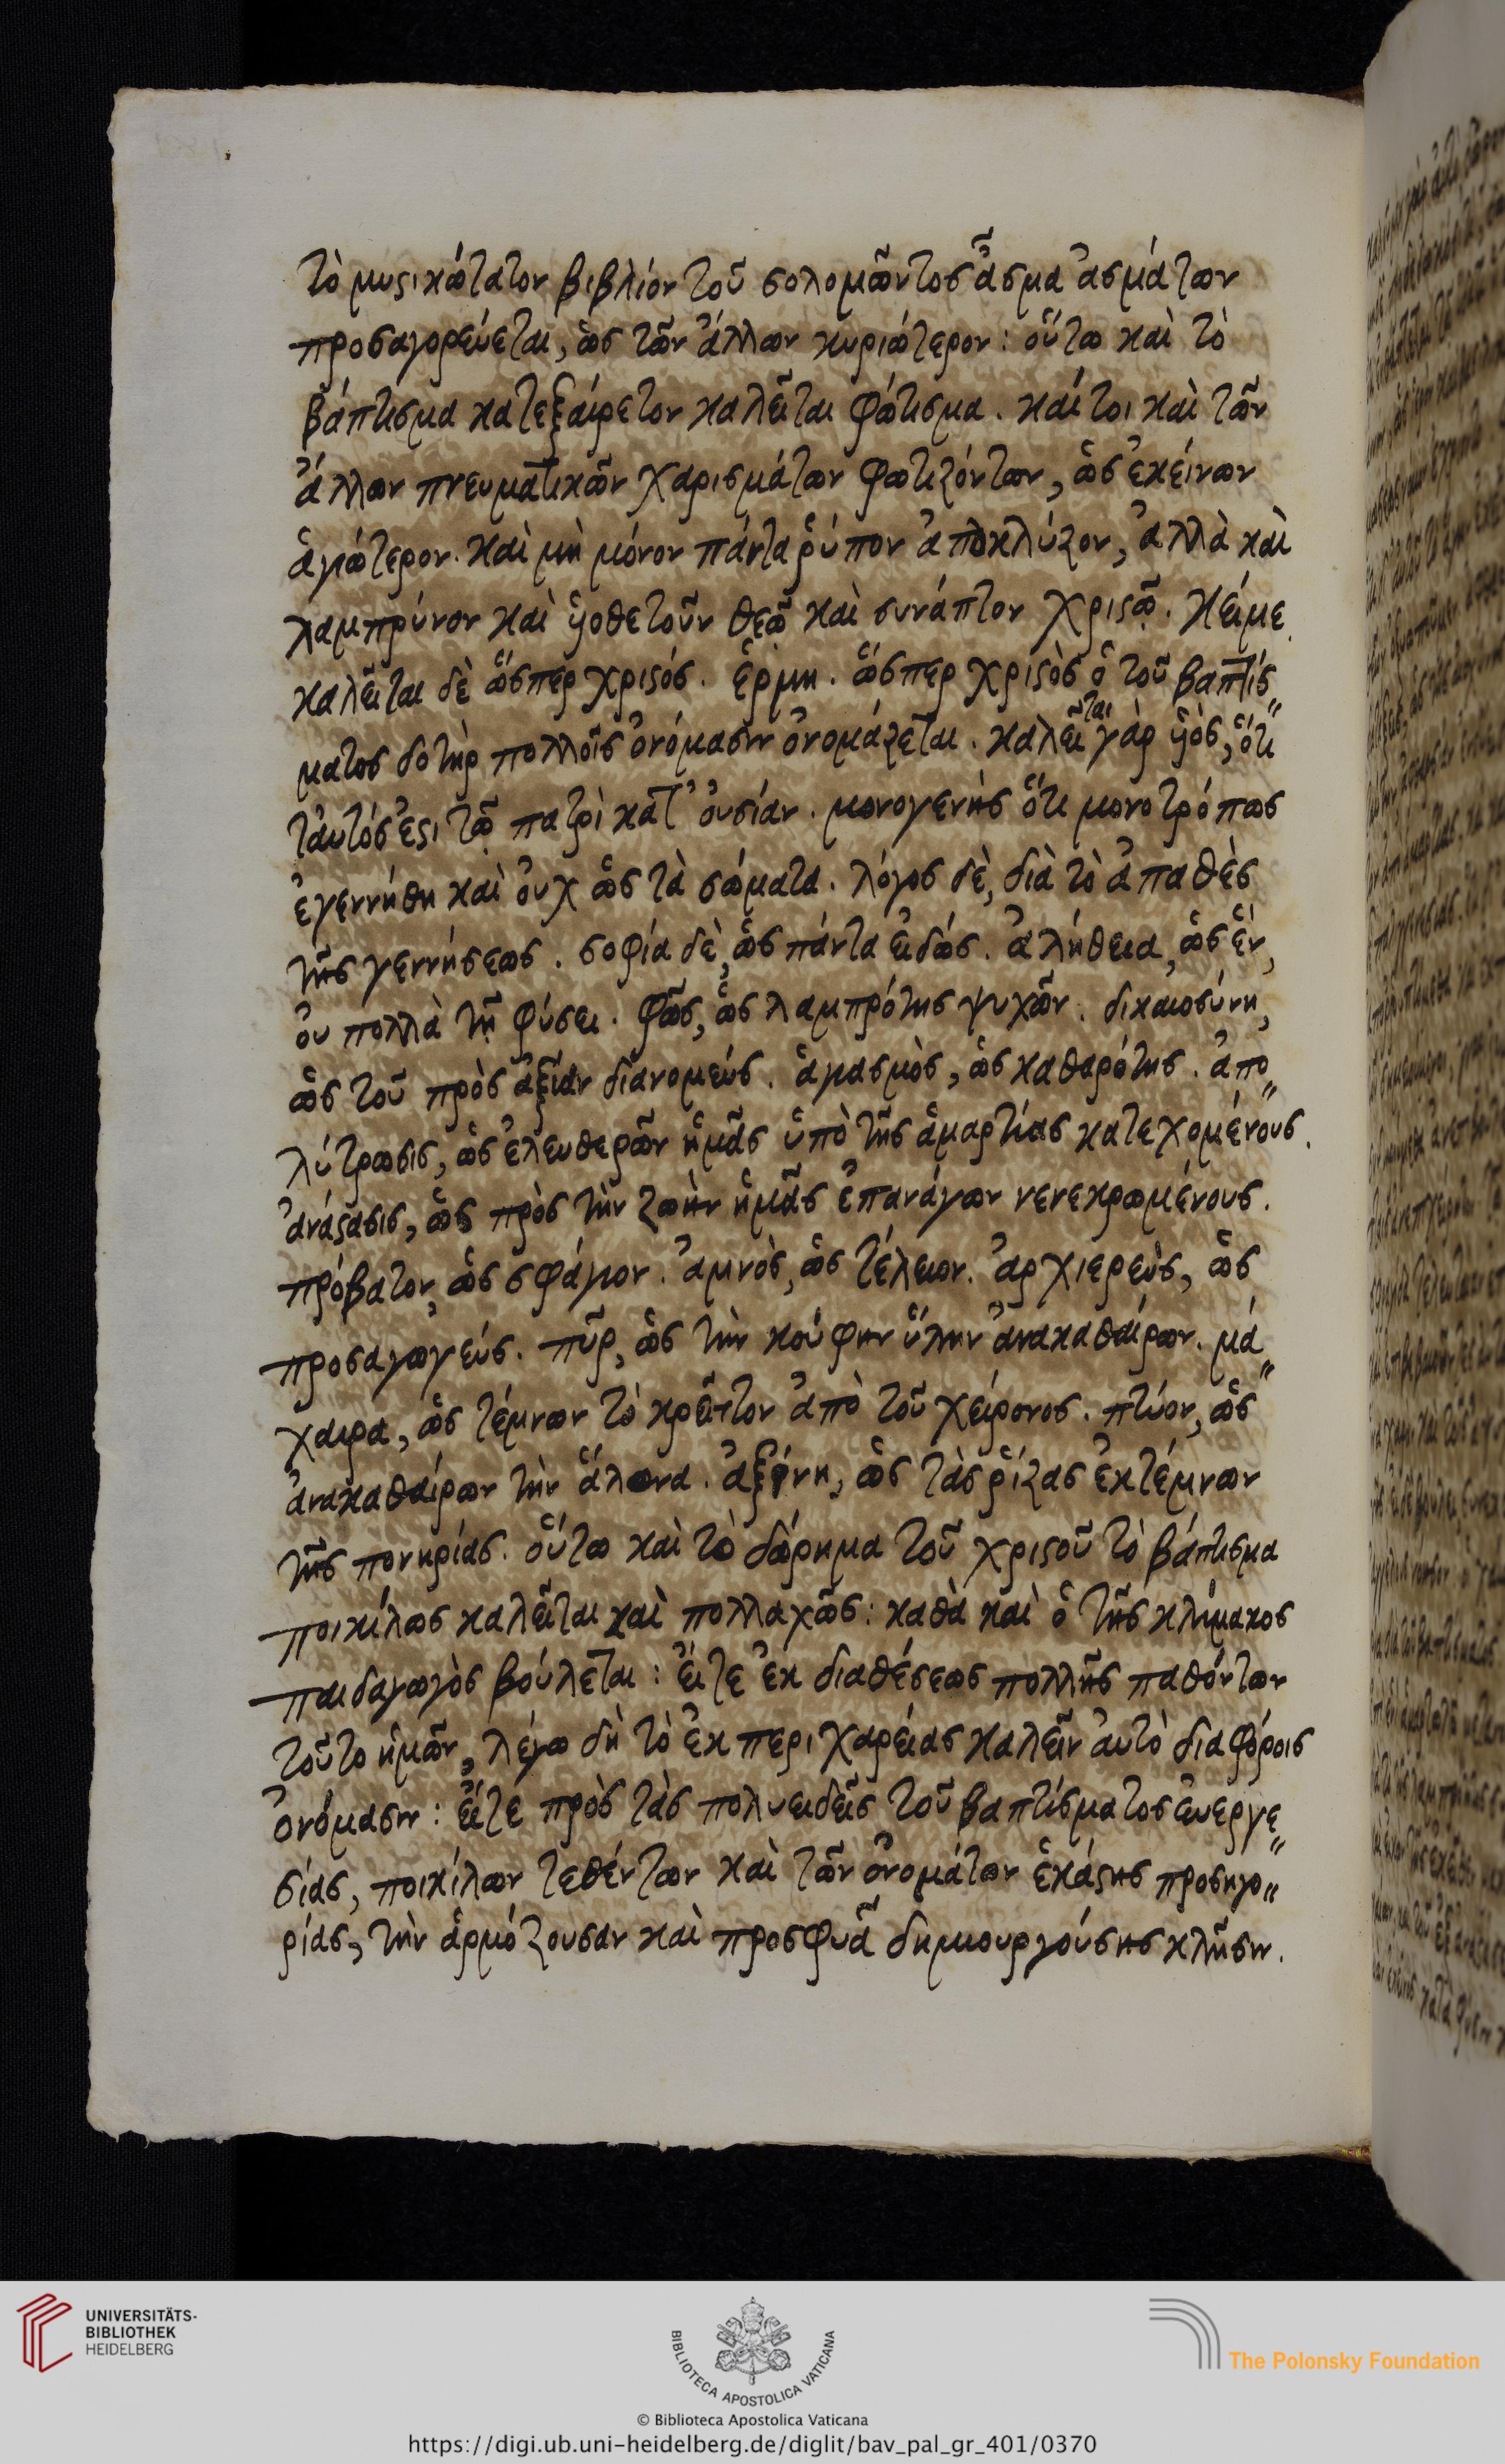 τὸ μυστικώτατον βιβλίον τοῦ σολομῶντος ἆσμα ἀσμάτων
προσαγορεύεται, ὡς τῶν ἄλλων κυριώτερον: οὕτω καὶ τὸ
βάπτισμα κατεξαίρετον καλεῖται φώτισμα. καίτοι καὶ τῶν
ἄλλων πνευματικῶν χαρισμάτων φωτιζόντων, ὡς ἐκείνων
ἁγιώτερον. καὶ μὴ μόνον πάντα ῥύπον ἀποκλύζον, ἀλλὰ καὶ
λαμπρύνον καὶ ὑοθετοῦν θεῷ καὶ συνάπτον χριστῷ. κείμε.
καλεῖται δὲ ὥσπερ χριστός. ἑρμη. ὥσπερ χριστὸς ὁ τοῦ βαπτίσ„
ματος δοτὴρ πολλοῖς ὀνόμασιν ὀνομάζεται. καλεῖται γὰρ ὑὸς, ὅτι
ταυτός ἐστι τῷ πατρὶ κατ' οὐσίαν. μονογενὴς ὅτι μονοτρόπως
ἐγεννήθη καὶ οὐχ ὡς τὰ σώματα. λόγος δὲ, διὰ τὸ ἀπαθὲς
τῆς γεννήσεως. σοφία δὲ, ὡς πάντα εἰδώς. ἀλήθεια, ὡς ἓν,
οὐ πολλὰ τῇ φύσει. φῶς, ὡς λαμπρότης ψυχῶν. δικαιοσύνη,
ὡς τοῦ πρὸς ἀξίαν διανομεύς. ἁγιασμὸς, ὡς καθαρότης. ἀπο„
λύτρωσις, ὡς ἐλευθερῶν ἡμᾶς ὑπὸ τῆς ἁμαρτίας κατεχομένους.
ἀνάστασις, ὡς πρὸς τὴν ζωὴν ἡμᾶς ἐπανάγων νενεκρωμένους.
πρόβατον, ὡς σφάγιον. ἀμνὸς, ὡς τέλειον. ἀρχιερεὺς, ὡς
προσαγωγεύς. πῦρ, ὡς τὴν κούφην ὕλην ἀνακαθαίρων. μά„
χαιρα, ὡς τέμνων τὸ κρεῖττον ἀπὸ τοῦ χείρονος. πτύον, ὡς
ἀνακαθαίρων τὴν ἅλωνα. ἀξίνη, ὡς τὰς ῥίζας ἐκτέμνων
τῆς πονηρίας. οὕτω καὶ τὸ δώρημα τοῦ χριστοῦ τὸ βάπτισμα
ποικίλως καλεῖται καὶ πολλαχῶς: καθὰ καὶ ὁ τῆς κλίμακος
παιδαγωγὸς βούλεται: εἴτε ἐκ διαθέσεως πολλῆς παθόντων
τοῦτο ἡμῶν, λέγω δὴ τὸ ἐκ περιχαρείας καλεῖν αὐτὸ διαφόροις
ὀνόμασιν: εἴτε πρὸς τὰς πολυειδεῖς τοῦ βαπτίσματος εὐεργε„
σίας, ποικίλων τεθέντων καὶ τῶν ὀνομάτων ἑκάστης προσηγο„
ρίας, τὴν ἁρμόζουσαν καὶ προσφυᾶ δημιουργούσης κλῆσιν.
UNIVERSITÄTS-
BIBLIOTHEK
HEIDELBERG
BIBLIOTECA APOSTOLICA VATICANA
The Polonsky Foundation
© Biblioteca Apostolica Vaticana
https://digi.ub.uni-heidelberg.de/diglit/bav_pal_gr_401/0370